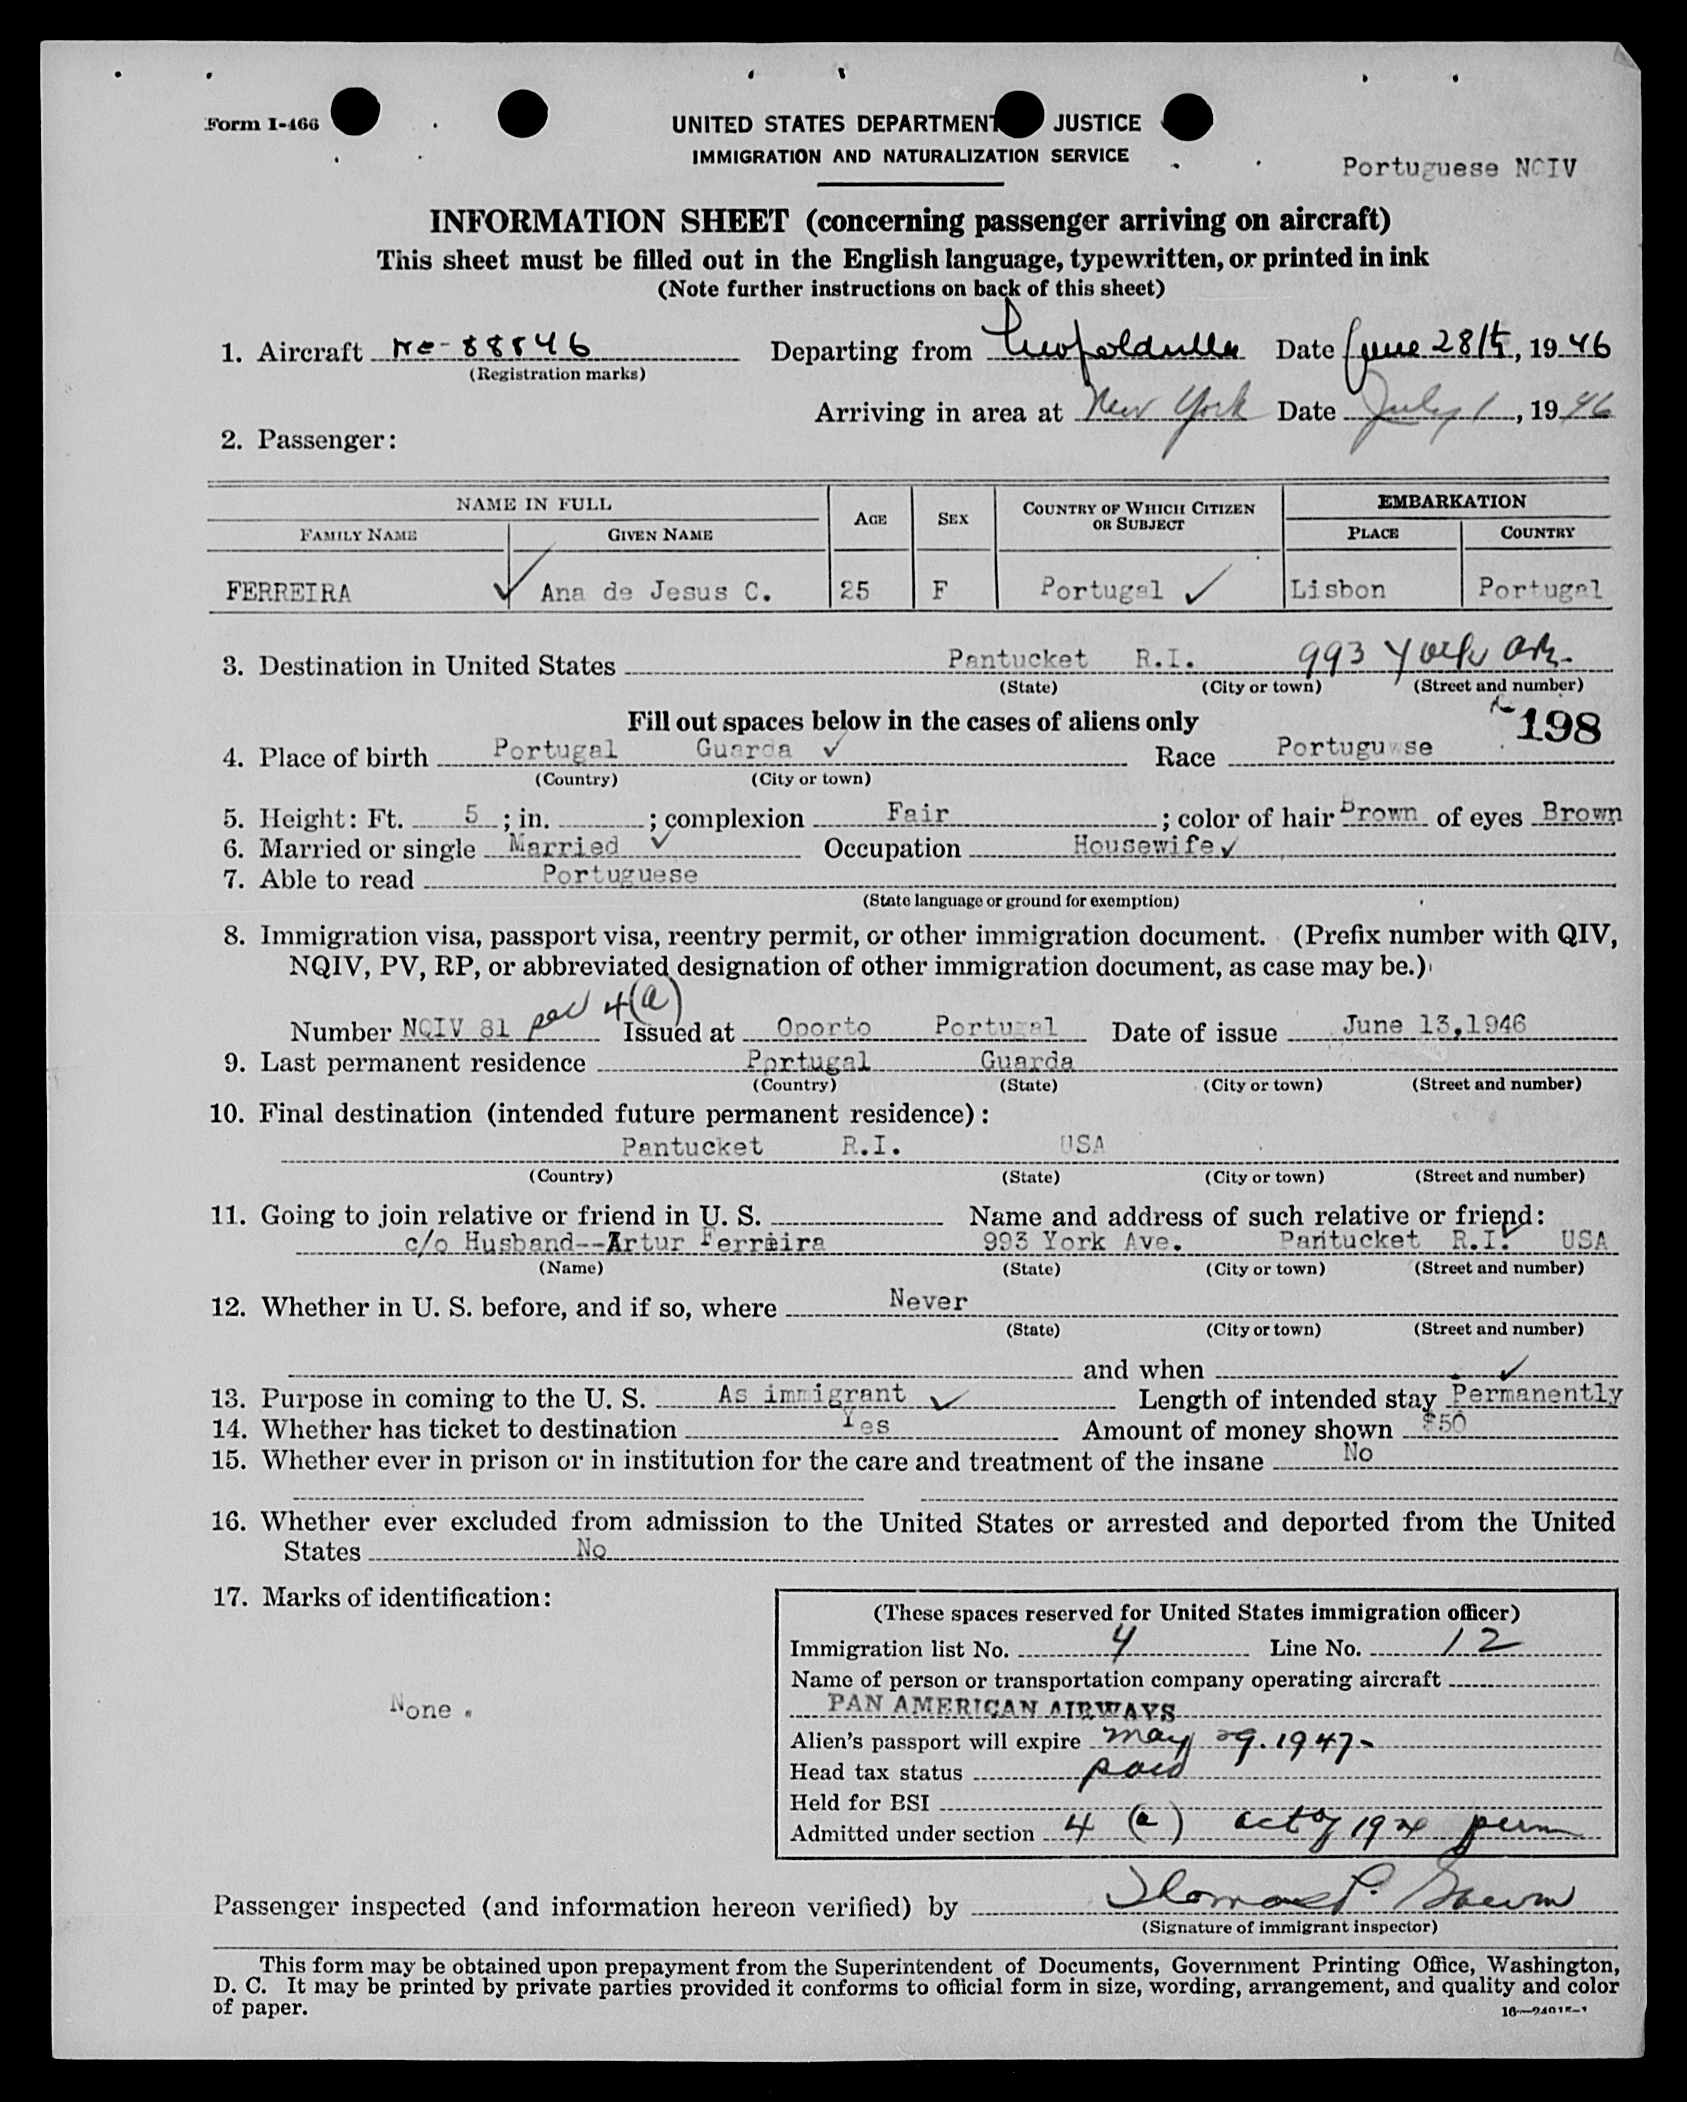 Form I-466
UNITED STATES DEPARTMENT JUSTICE
IMMIGRATION AND NATURALIZATION SERVICE
Portuguese NQIV
INFORMATION SHEET (concerning passenger arriving on aircraft)
This sheet must be filled out in the English language, typewritten, or printed in ink
(Note further instructions on back of this sheet)
1. Aircraft NC-88846 Departing from Leopoldville Date June 28th, 1946
(Registration marks)
Arriving in area at New York Date July 1, 1946
2. Passenger:
NAME IN FULL AGE SEX COUNTRY OF WHICH CITIZEN OR SUBJECT EMBARKATION
FAMILY NAME GIVEN NAME PLACE COUNTRY
FERREIRA ✓ Ana de Jesus C. 25 F Portugal ✓ Lisbon Portugal
3. Destination in United States Pantucket R.I. 993 York
(State) (City or town) (Street and number)
Fill out spaces below in the cases of aliens only
198
4. Place of birth Portugal Guarda ✓ Race Portuguwse
(Country) (City or town)
5. Height: Ft. 5 ; in. ; complexion Fair ; color of hair Brown of eyes Brown
6. Married or single Married ✓ Occupation Housewife ✓
7. Able to read Portuguese
(State language or ground for exemption)
8. Immigration visa, passport visa, reentry permit, or other immigration document. (Prefix number with QIV,
NQIV, PV, RP, or abbreviated designation of other immigration document, as case may be.)
Number NQIV 81 sec 4(a) Issued at Oporto Portugal Date of issue June 13,1946
9. Last permanent residence Portugal Guarda
(Country) (State) (City or town) (Street and number)
10. Final destination (intended future permanent residence):
Pantucket R.I. USA
(Country) (State) (City or town) (Street and number)
11. Going to join relative or friend in U. S. Name and address of such relative or friend:
c/o Husband--Artur Ferreira 993 York Ave. Pantucket R.I. ✓ USA
(Name) (State) (City or town) (Street and number)
12. Whether in U. S. before, and if so, where Never
(State) (City or town) (Street and number)
and when ✓
13. Purpose in coming to the U. S. As immigrant ✓ Length of intended stay Permanently
14. Whether has ticket to destination Yes Amount of money shown $50
15. Whether ever in prison or in institution for the care and treatment of the insane No
16. Whether ever excluded from admission to the United States or arrested and deported from the United
States No
17. Marks of identification:
None.
(These spaces reserved for United States immigration officer)
Immigration list No. 4 Line No. 12
Name of person or transportation company operating aircraft
PAN AMERICAN AIRWAYS
Alien's passport will expire May 29. 1947-
Head tax status paid
Held for BSI
Admitted under section 4 (a) act of 1924 perm
Passenger inspected (and information hereon verified) by Thomas P.
(Signature of immigrant inspector)
This form may be obtained upon prepayment from the Superintendent of Documents, Government Printing Office, Washington,
D. C. It may be printed by private parties provided it conforms to official form in size, wording, arrangement, and quality and color
of paper.